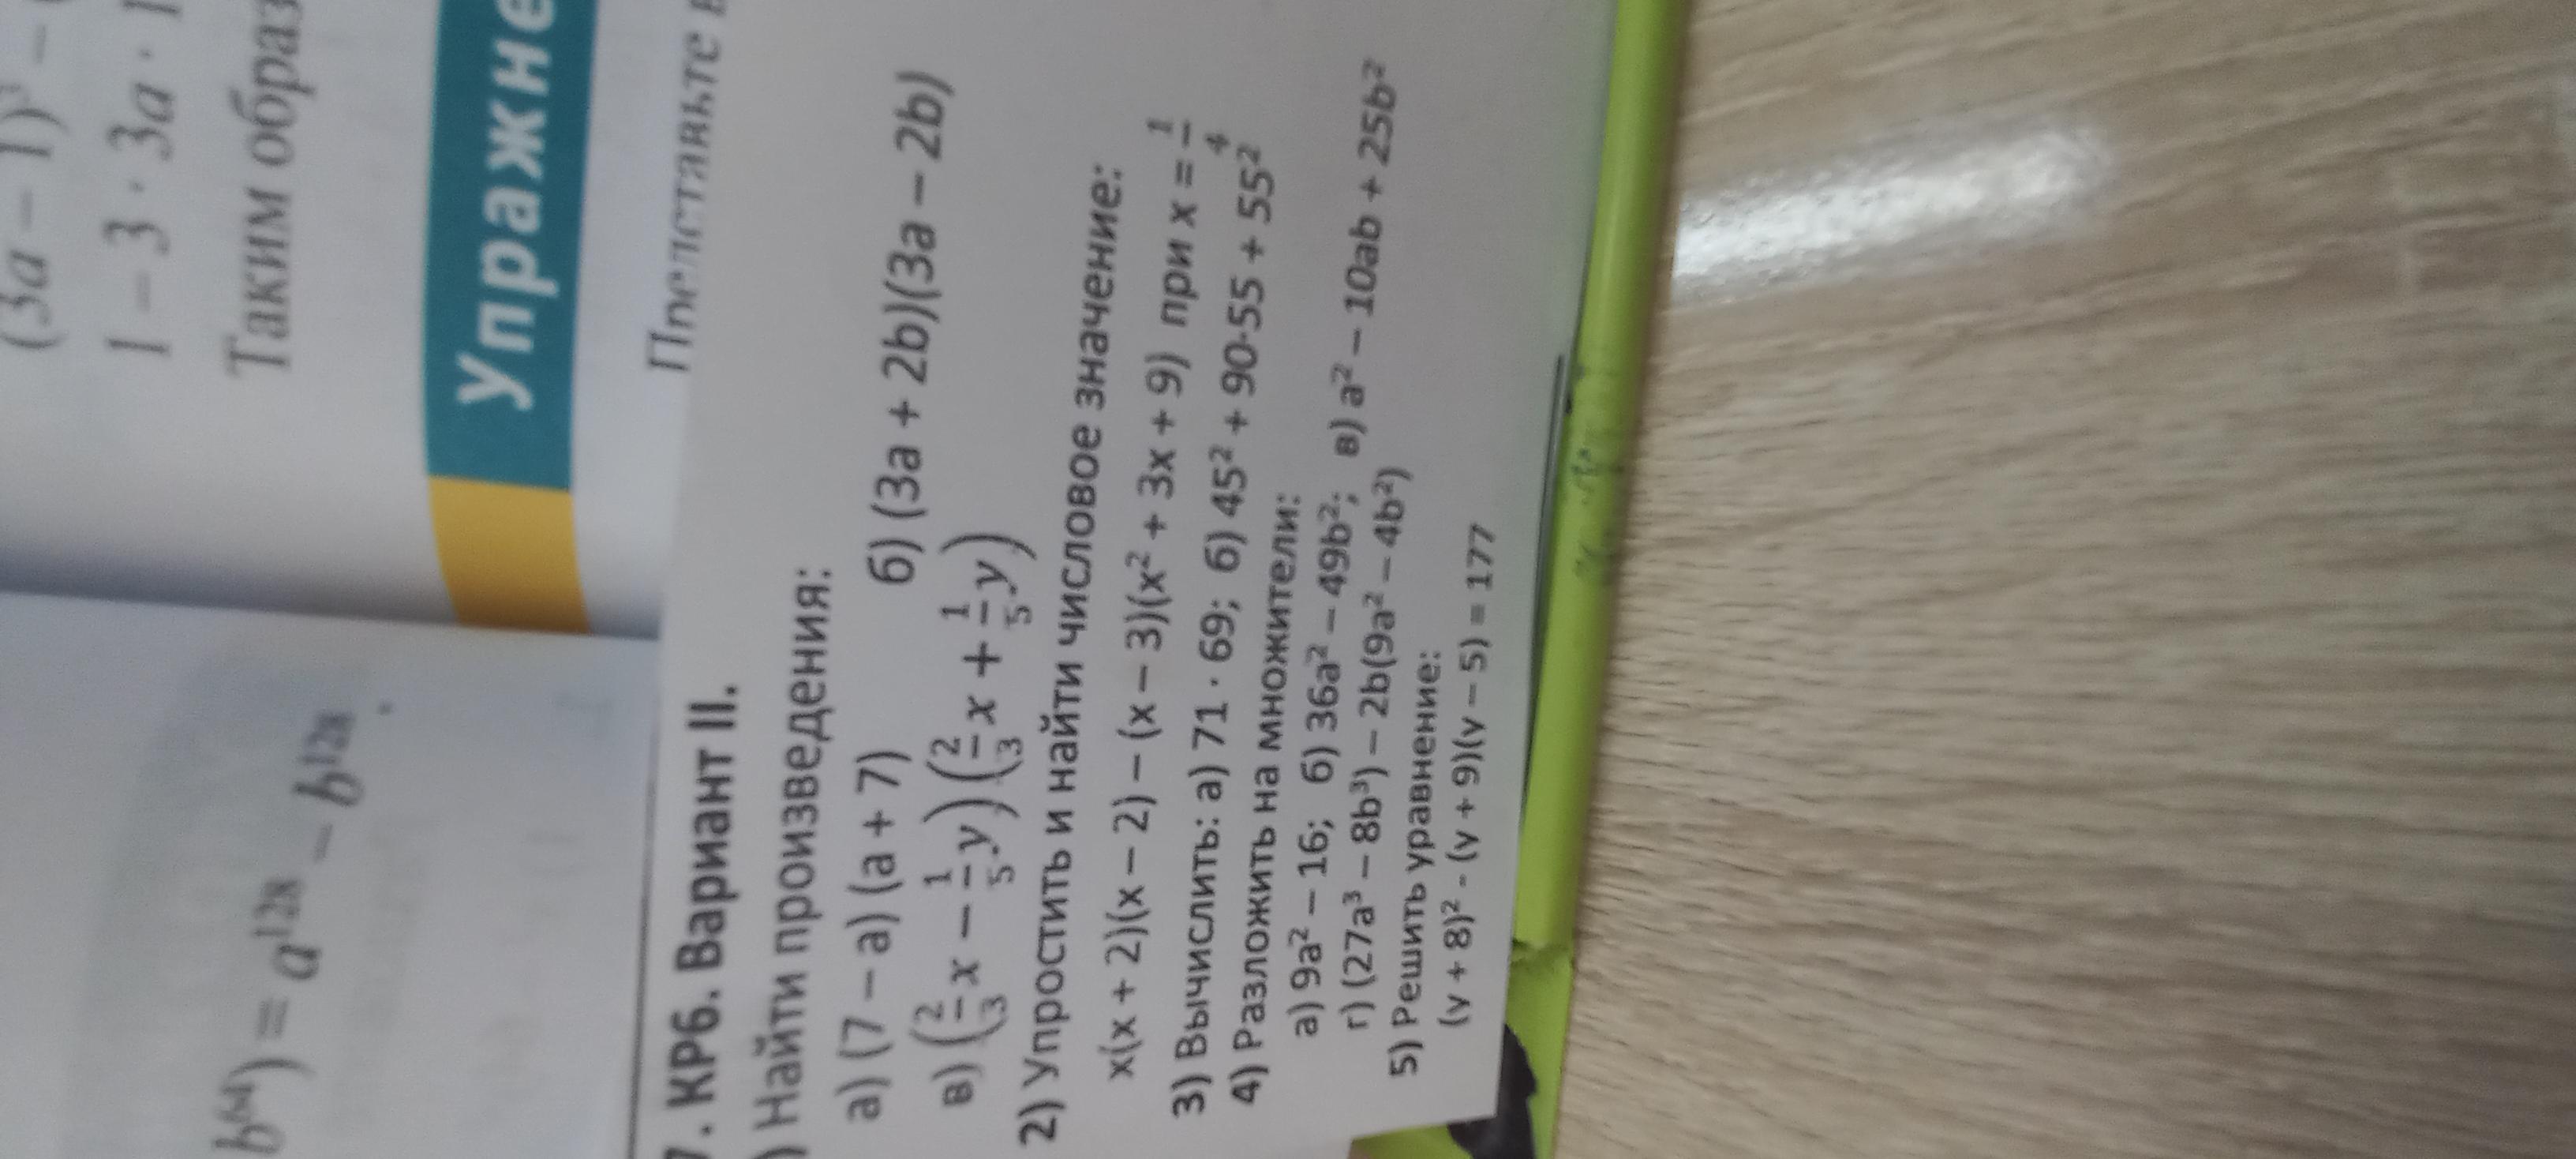 (3a – 1)³ –
1 – 3 · 3a · 1
Таким образ
Упражне
Представьте в
) = a¹²ⁿ – b¹²ⁿ.
7. КР6. Вариант II.
) Найти произведения:
а) (7 – a) (a + 7) б) (3a + 2b)(3a – 2b)
в) (2/3 x – 1/5 y) (2/3 x + 1/5 y)
2) Упростить и найти числовое значение:
x(x + 2)(x – 2) – (x – 3)(x² + 3x + 9) при x = 1/4
3) Вычислить: а) 71 · 69; б) 45² + 90·55 + 55²
4) Разложить на множители:
а) 9a² – 16; б) 36a² – 49b²; в) a² – 10ab + 25b²
г) (27a³ – 8b³) – 2b(9a² – 4b²)
5) Решить уравнение:
(y + 8)² - (y + 9)(y – 5) = 177